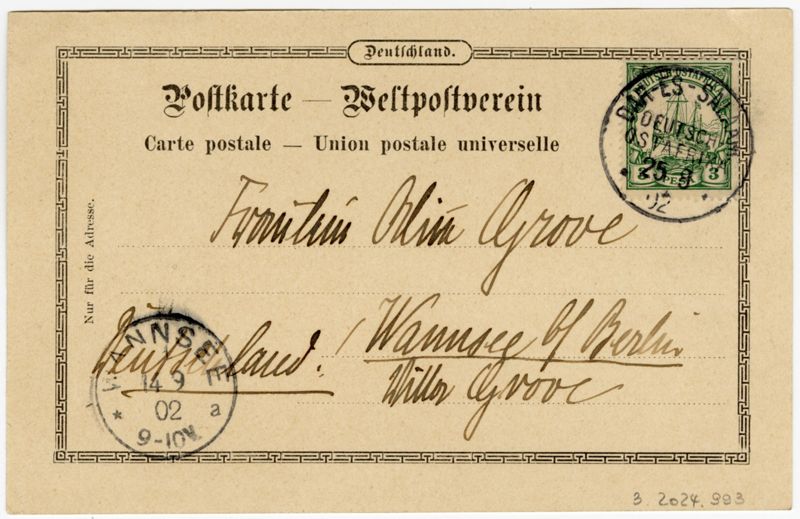 Deutschland.
Postkarte — Weltpostverein
Carte postale — Union postale universelle
DEUTSCH OSTAFRIKA
3 PESA 3
DAR-ES-SALAAM
DEUTSCH
OSTAFRIKA
25 8
02
Nur für die Adresse.
Fräulein Grove
Wannsee b/ Berlin
Deutschland.
Grove
WANNSEE
14 9
02
* a
9-10V.
3.2024.993